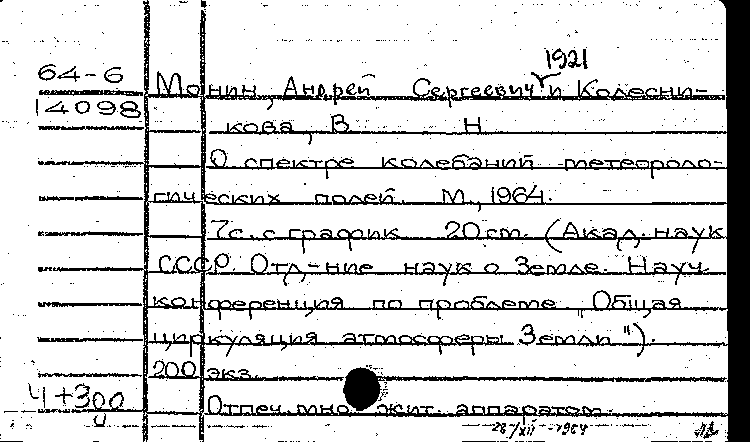 1921
64-6 Монин, Андрей Сергеевич и Колесни-
14098 кова, В Н
О спектре колебаний метеороло-
гических полей. М., 1964.
7с. с график 20 см. (Акад. наук
СССР. Отд-ние наук о Земле. Науч.
конференция по проблеме „Общая
циркуляция атмосферы Земли").
200 экз.
Ч+300
Отпеч. множит. аппаратом.
28/XII - 1964